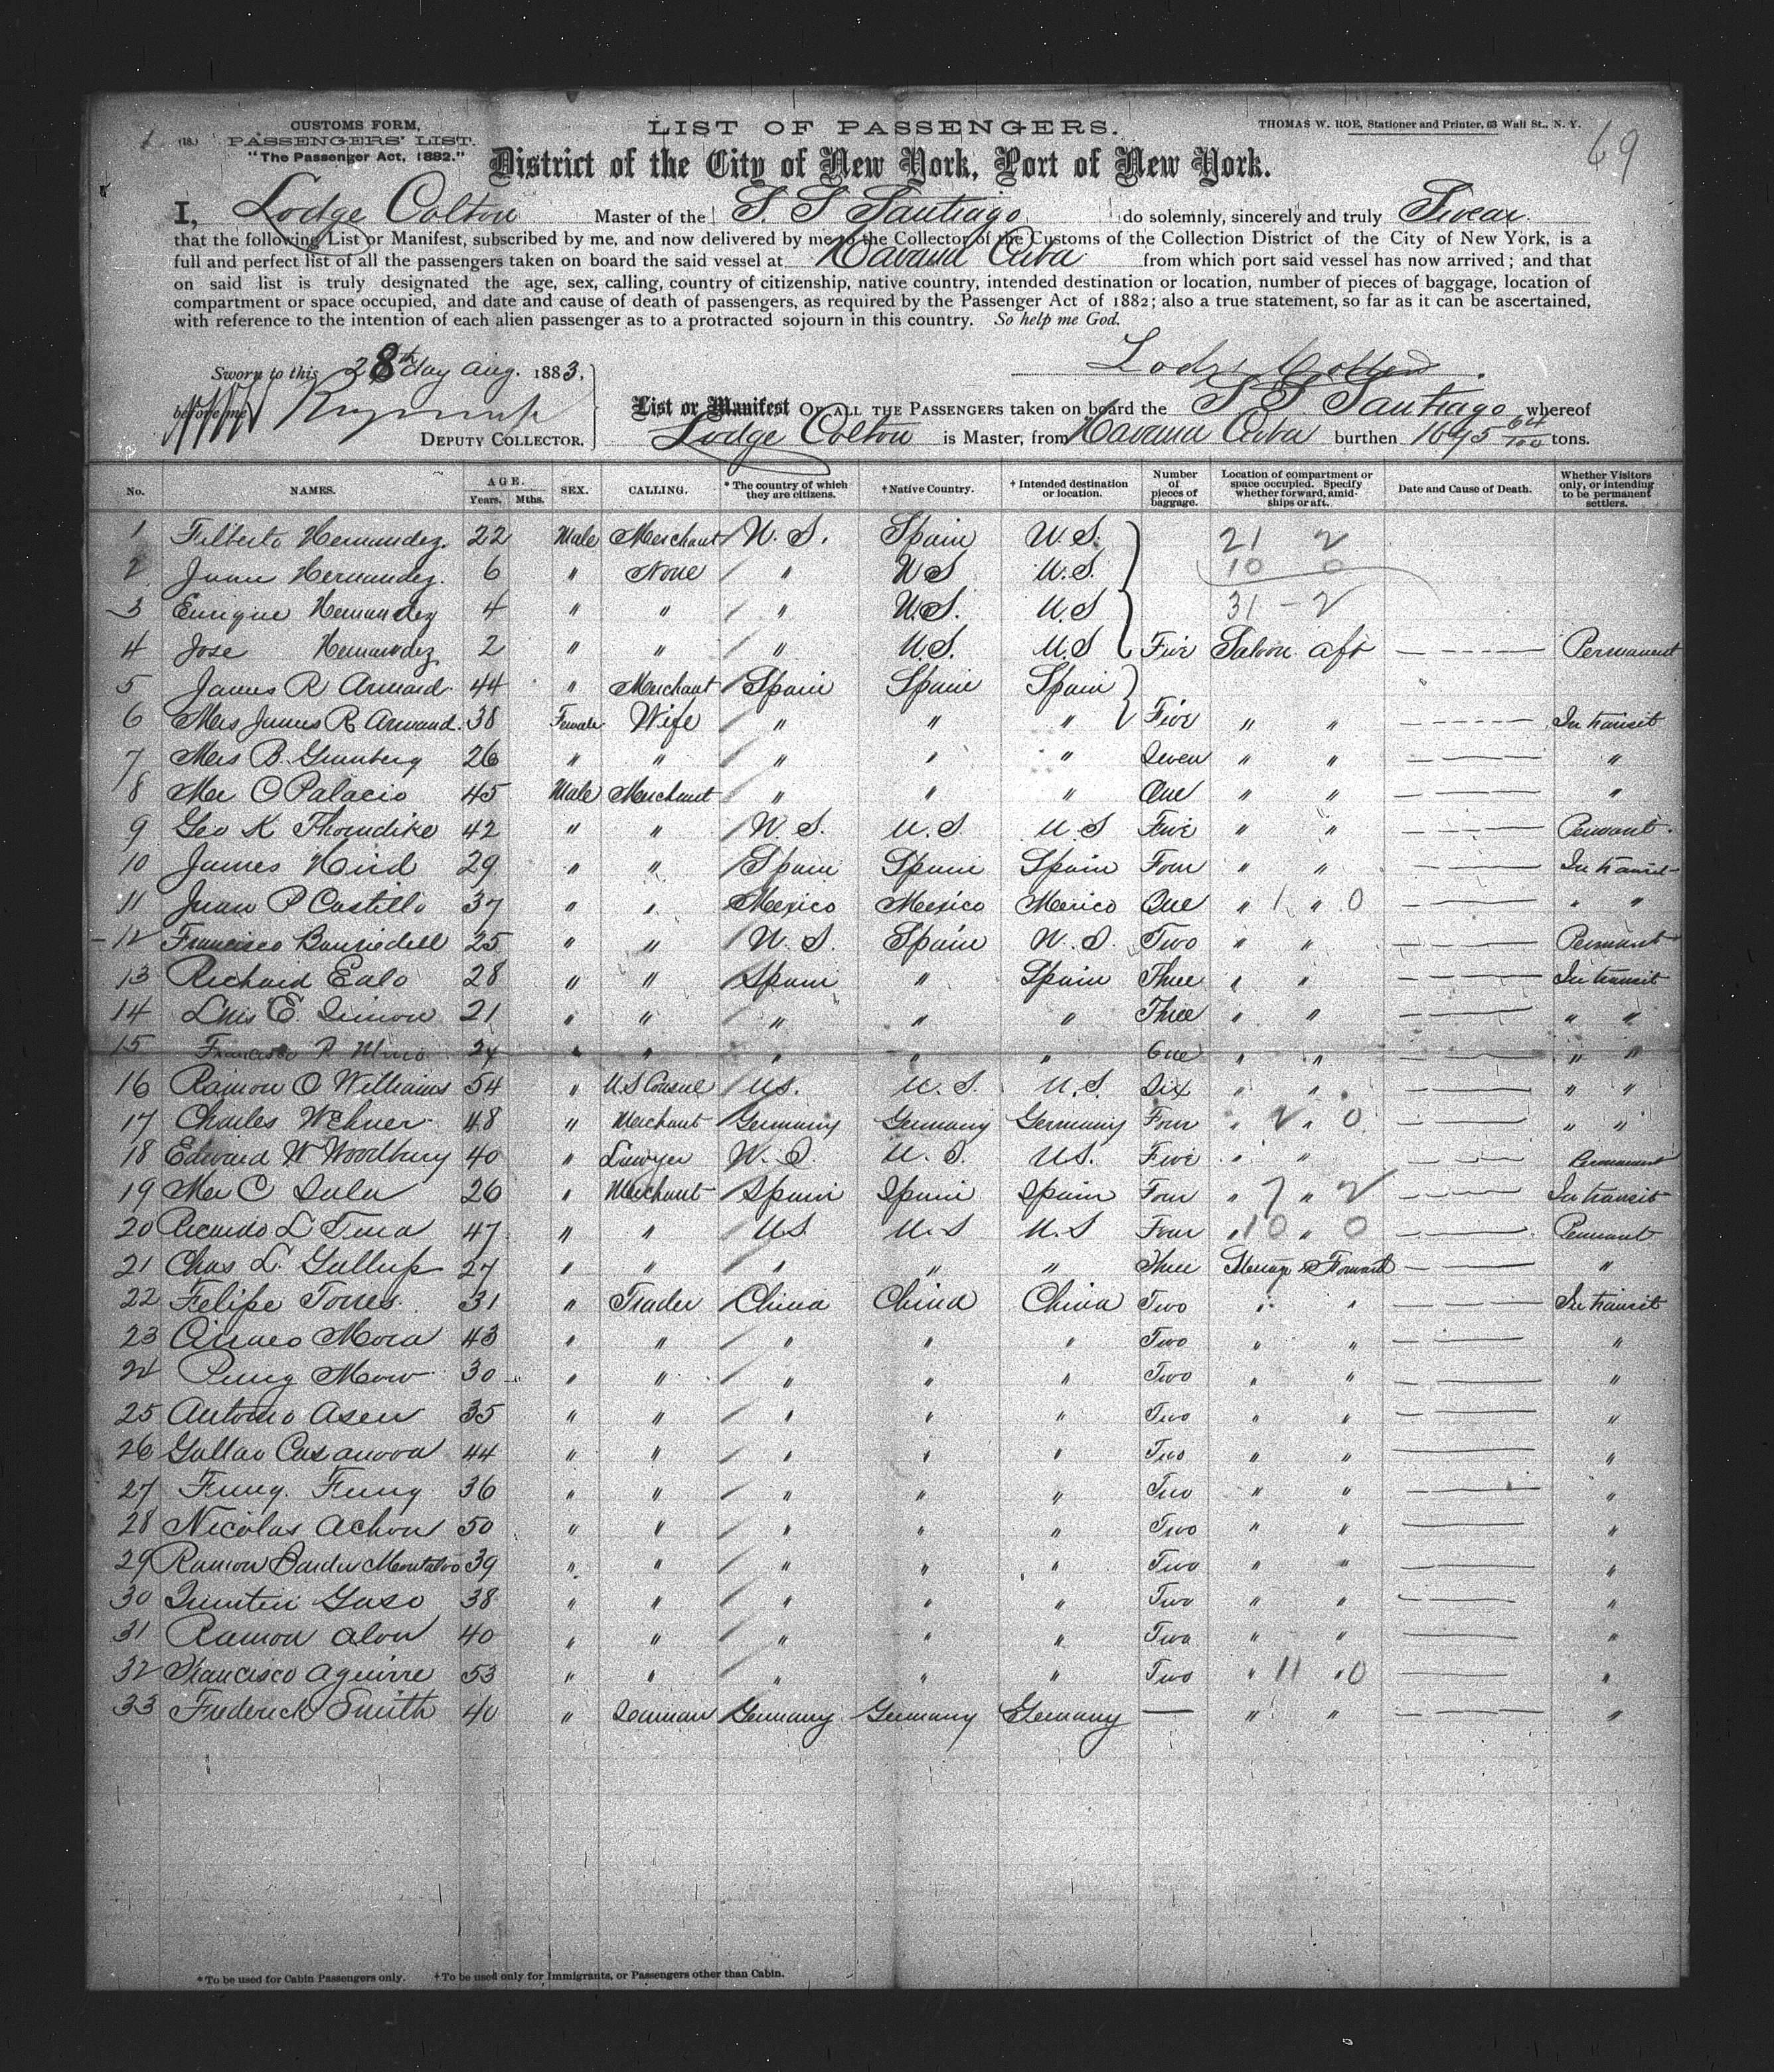 69
(18.)
CUSTOMS FORM,
PASSENGERS' LIST.
"The Passenger Act, 1882."
LIST OF PASSENGERS.
THOMAS W. ROE, Stationer and Printer, 63 Wall St., N. Y.
District of the City of New York, Port of New York.
I, Lodge Colton Master of the S. S Santiago do solemnly, sincerely and truly Swear
that the following List or Manifest, subscribed by me, and now delivered by me to the Collector of the Customs of the Collection District of the City of New York, is a
full and perfect list of all the passengers taken on board the said vessel at Havana Cuba from which port said vessel has now arrived; and that
on said list is truly designated the age, sex, calling, country of citizenship, native country, intended destination or location, number of pieces of baggage, location of
compartment or space occupied, and date and cause of death of passengers, as required by the Passenger Act of 1882; also a true statement, so far as it can be ascertained,
with reference to the intention of each alien passenger as to a protracted sojourn in this country. So help me God.
Sworn to this 28th day Aug. 1883,
Lodge Colton
before me
DEPUTY COLLECTOR.
List or Manifest OF ALL THE PASSENGERS taken on board the S S Santiago whereof
Lodge Colton is Master, from Havana Cuba burthen 1695 64/100 tons.
No. NAMES. AGE. Years, Mths. SEX. CALLING. * The country of which they are citizens. † Native Country. † Intended destination or location. Number of pieces of baggage. Location of compartment or space occupied. Specify whether forward, amidships or aft. Date and Cause of Death. Whether Visitors only, or intending to be permanent settlers.
1 Filberto Hernandez. 22 Male Merchant U. S. Spain U. S. 21 2
2 Juan Hernandez. 6 " None " U S U. S. 10 0
3 Enrique Hernandez 4 " " " U. S. U. S 31 - 2
4 Jose Hernandez 2 " " " U. S. U. S Five Saloon aft Permanent
5 James R Armand 44 " Merchant Spain Spain Spain
6 Mrs James R Armand. 38 Female Wife " " " Five " " In transit
7 Mrs B. Grunberg 26 " " " " " Seven " " "
8 Mr C Palacio 45 Male Merchant " " " One " " "
9 Geo K Thorndike 42 " " U. S. U. S U S Five " " Permant.
10 James Hird 29 " " Spain Spain Spain Four " " In transit
11 Juan P Castillo 37 " " Mexico Mexico Mexico One " 1 " 0 " "
12 Francisco 25 " " U. S. Spain U. S. Two " " Permant
13 Richard Ealo 28 " " Spain " Spain Three " " In transit
14 Luis E. Simon 21 " " " " " Three " " " "
15 Francisco P. 24 " " " " " One " " " "
16 Ramon O Williams 54 " U. S Consul U S. U. S. U. S. Six " " " "
17 Charles Wehner 48 " Merchant Germany Germany Germany Four " 2 " 0 " "
18 Edward W Woodbury 40 " Lawyer U. S. U. S. U S. Five " " Permanent
19 Mr C Sula 26 " Merchant Spain Spain Spain Four " 7 " 2 In transit
20 Ricardo L 47 " " U S U. S U. S Four " 10 " 0 Permant
21 Chas L. Gallup 27 " " " " " Three Steerage & Forward "
22 Felipe Torres. 31 " Trader China China China Two " " In transit
23 Mora 43 " " " " " Two " " "
24 Pung Mow 30 " " " " " Two " " "
25 Antonio Asen 35 " " " " " Two " " "
26 Casanova 44 " " " " " Two " " "
27 Fung. Fung 36 " " " " " Two " " "
28 Nicolas Achon 50 " " " " " Two " " "
29 Ramon Montalvo 39 " " " " " Two " " "
30 Quintin Gaso 38 " " " " " Two " " "
31 Ramon Alon 40 " " " " " Two " " "
32 Francisco Aguirre 53 " " " " " Two " 11 " 0 "
33 Frederick Smith 40 " Seaman Germany Germany Germany — " " "
* To be used for Cabin Passengers only. † To be used only for Immigrants, or Passengers other than Cabin.